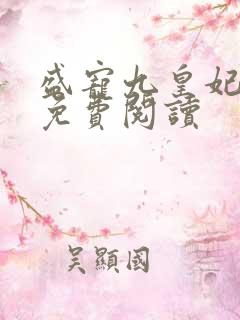 盛寵九皇妃
免費閱讀
吴顯國